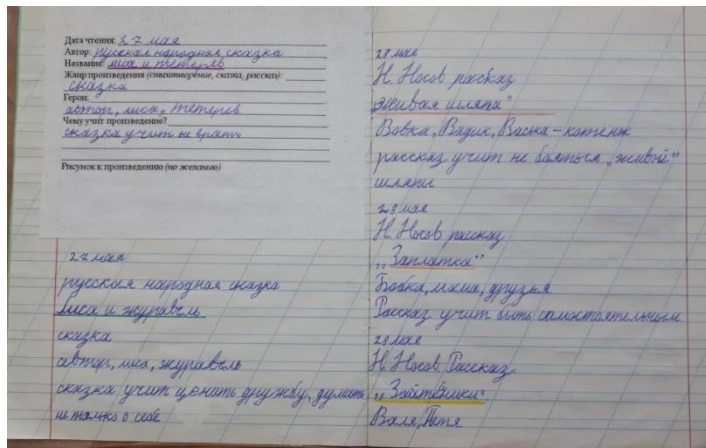 Дата чтения: 27 мая
Автор: русская народная сказка
Название: лиса и тетерев
Жанр произведения (стихотворение, сказка, рассказ):
сказка
Герои:
автор, лиса, тетерев
Чему учит произведение?
сказка учит не врать
Рисунок к произведению (по желанию)
27 мая
русская народная сказка
Лиса и журавль
сказка
автор, лиса, журавль
сказка учит ценить дружбу, думать
не только о себе
28 мая
Н. Носов рассказ
"Живая шляпа"
Вовка, Вадик, Васька - котёнок
рассказ учит не бояться "живой"
шляпы
28 мая
Н. Носов рассказ
"Заплатка"
Бобка, мама, друзья
Рассказ учит быть самостоятельным
28 мая
Н. Носов Рассказ
"Затейники"
Валя, Петя